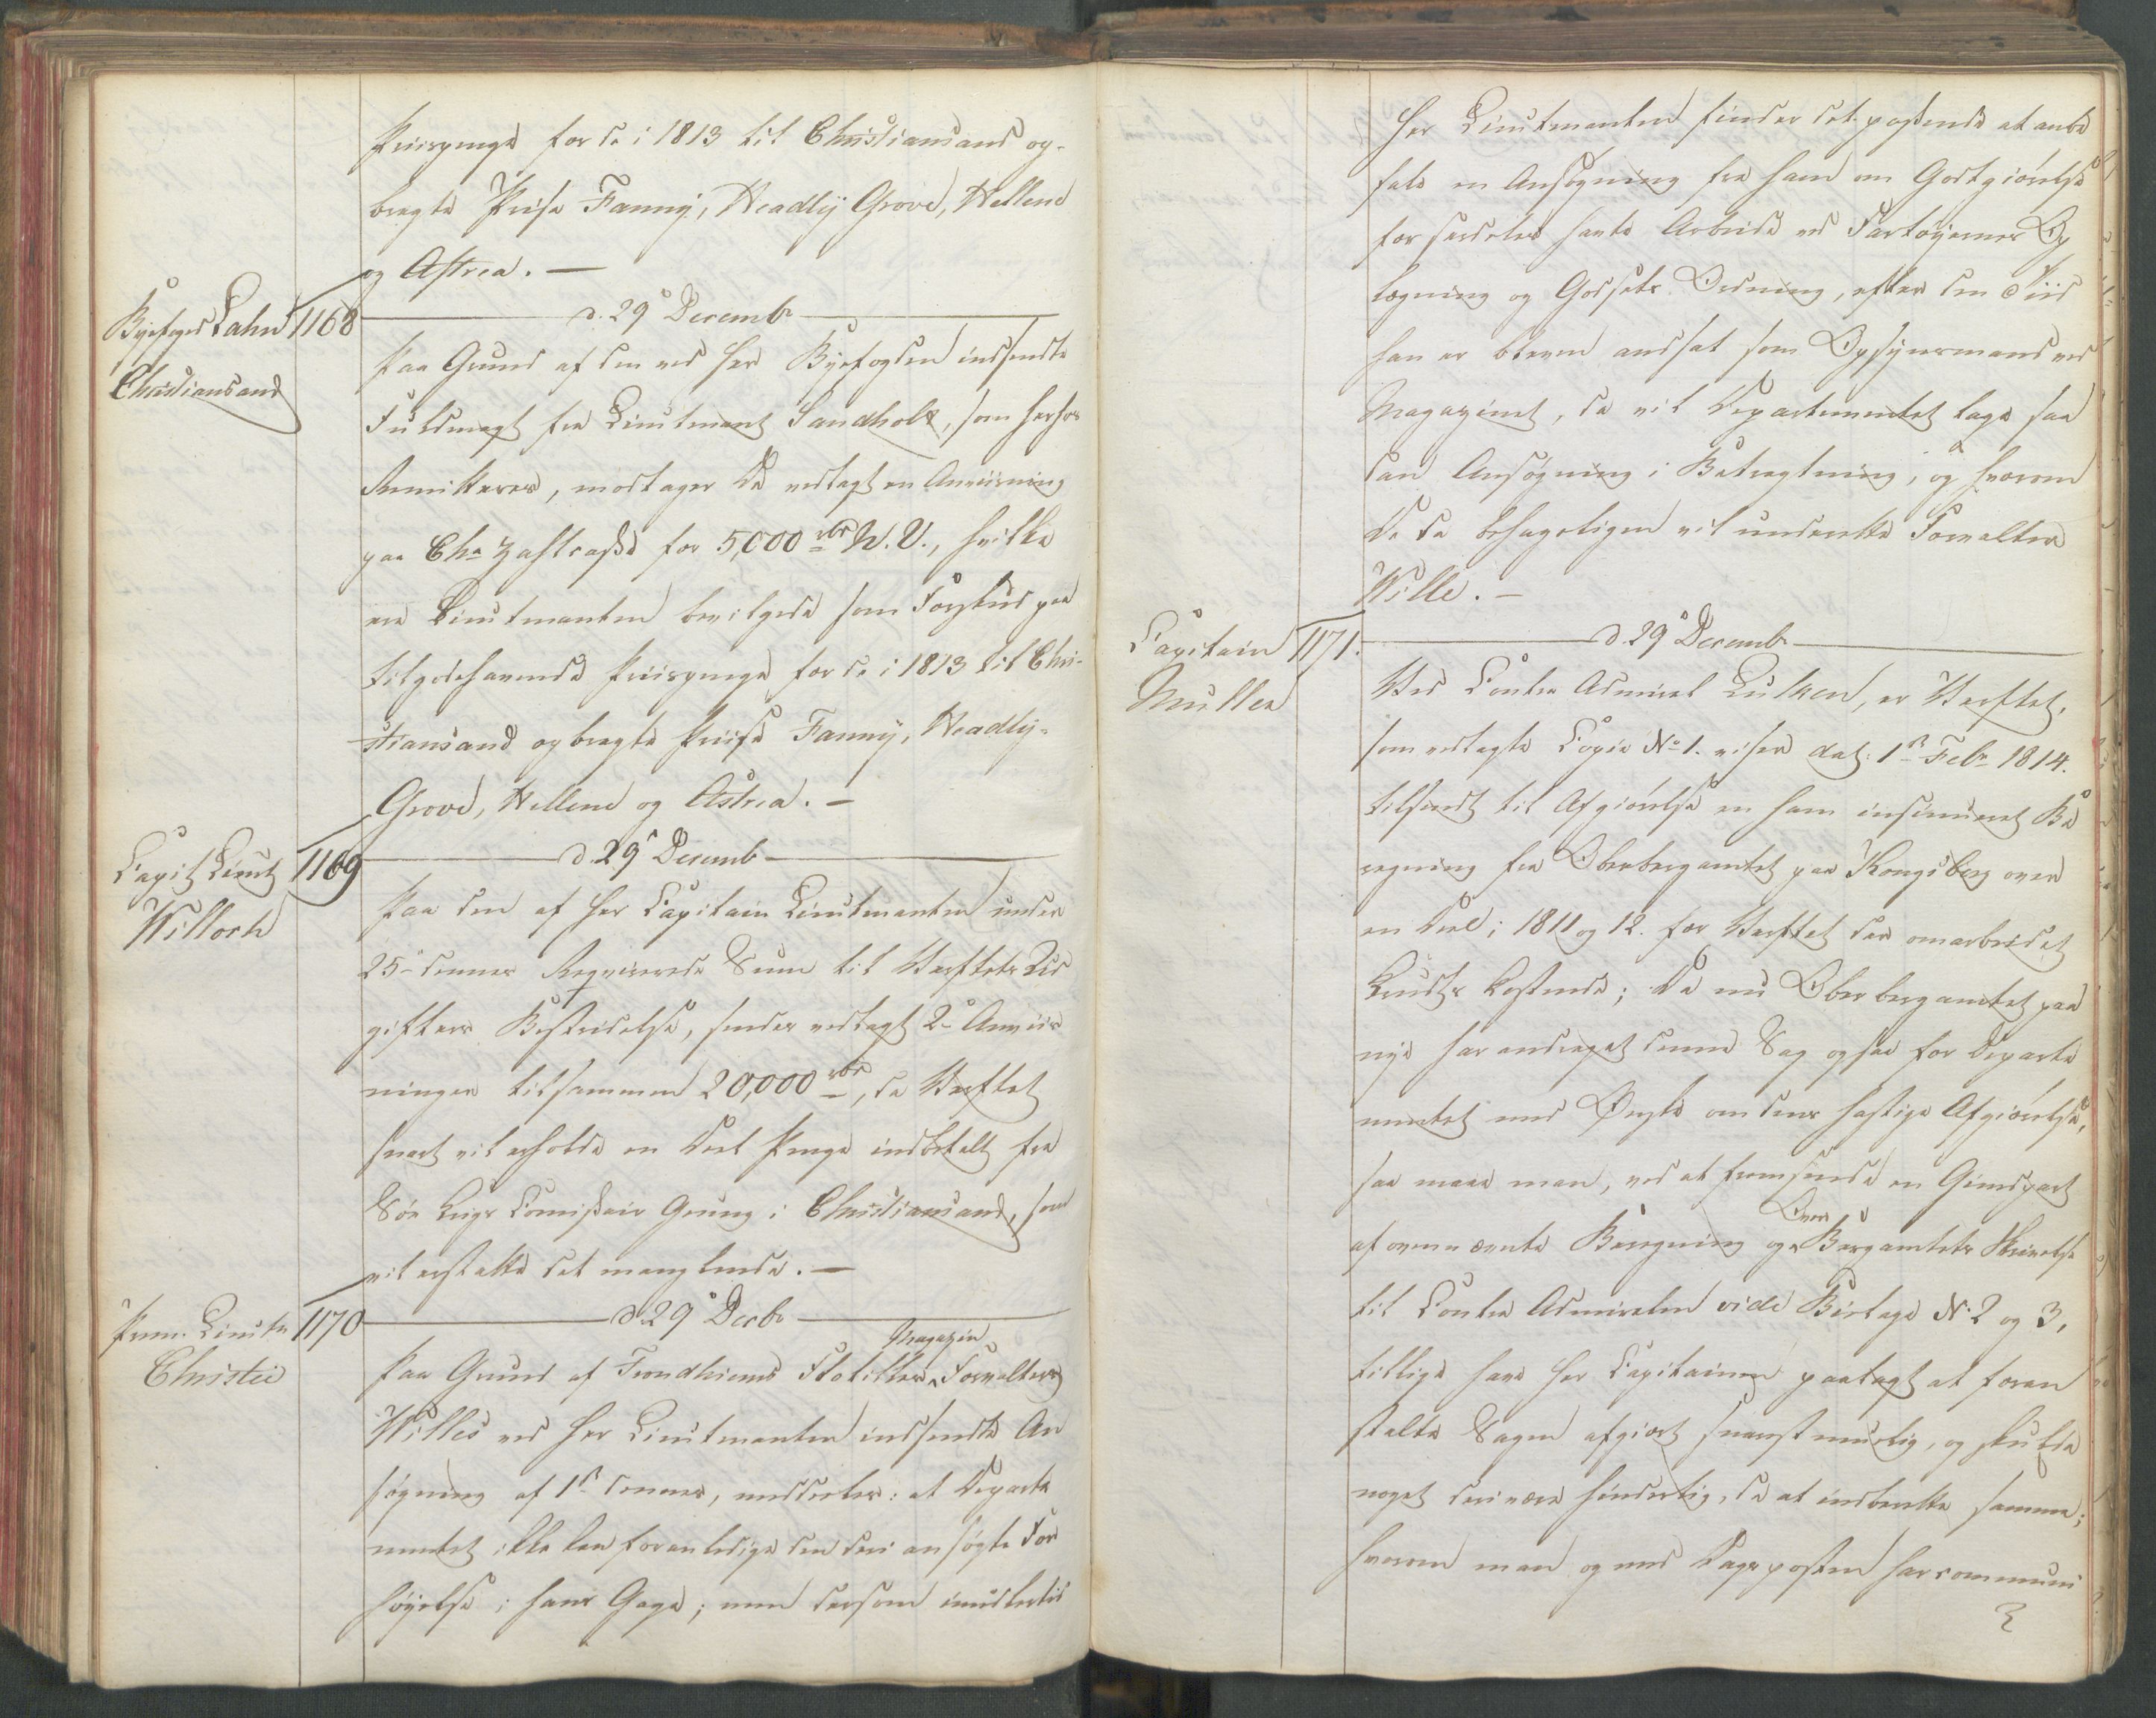 Priispenge for de i 1813 til Christiansand op-
bragte Prise Fanny, Headly Grove, Hellene
og Astrea. —
Byefoged Lahn 1168
Christiansand
d. 29 Decemb
Paa Grund af den ved Her Byefogden indsendte
Fuldmagt fra Lieutenant Sandholt, som herhos
Remitteres, modtager De vedlagt en Anviisning
paa Cha Zahlcasse for 5,000 rbd N. V., hvilke
ere Lieutnanten bevilgede som Forskud paa
tilgodehavende Priispenge for de i 1813 til Chri-
stiansand opbragte Priise Fanny, Headly-
Grove, Hellene og Astrea. —
Capit Lieut 1169
Willoch
d. 29 Decemb
Paa den af Her Capitain Lieutnanten under
25 dennes Reqvirerede Sum til Verftets Ud
gifters Bestridelse, sendes vedlagt 2 Anviis
ninger tilsammen 20,000 rbd, da Verftet
snart vil erholde en Deel Penge indbetalt fra
Søe Krigs Comissair Grung i Christiansand, som
vil erstatte det manglende. —
Prem. Lieutn 1170
Christie
d. 29 Decbr
Paa Grund af Trondhiems Flotilles Magazin Forvalters
Willes ved Her Lieutnanten indsendte An
søgning af 1st dennes, meddeeles: at Departe
mentet ikke kan foranledige den deri ansøgte For
høyelse i hans Gage; men dersom imidlertid
Her Lieutnanten finder det passende at anbe
fale en Ansøgning fra ham om Godtgiørelse
for særdeles havte Arbeide ved Fartøyernes Op
lægning og Godsets Ordning, efter den Tiid
han er bleven andsat som Opsynsmand ved
Magazinet, da vil Departementet tage saa
dan Ansøgning i Betragtning, og hvorom
De da behageligen vil underrette Forvalter
Wille. —
Capitain 1171.
Müller
d. 29 Decemb
Ved Contra Admiral Lutken, er Verftet,
som vedlagte Copie No 1. viser dat: 1st Febr 1814.
tilsendt til Afgiørelse en ham insinueret Be
regning fra Oberbergamtet paa Kongsberg over
en Deel i 1811 og 12. for Verftet der omarbeidet
Krudts Kostende; Da nu Oberbergamtet paa
nye har andraget denne Sag ogsaa for Departe
mentet med Ønske om dens hastige Afgiørelse,
saa maae man, ved at fremsende en Gienpart
af ovennævnte Beregning og Over Bergamtets Skrivelse
til Contra Admiralen vide Bielage No 2 og 3,
tillige have Her Capitainen paalagt at foran
stalte Sagen afgiort snarest muelig, og skulde
noget deri være hinderlig, da at indberette samme;
hvorom man og med Dags posten har communi